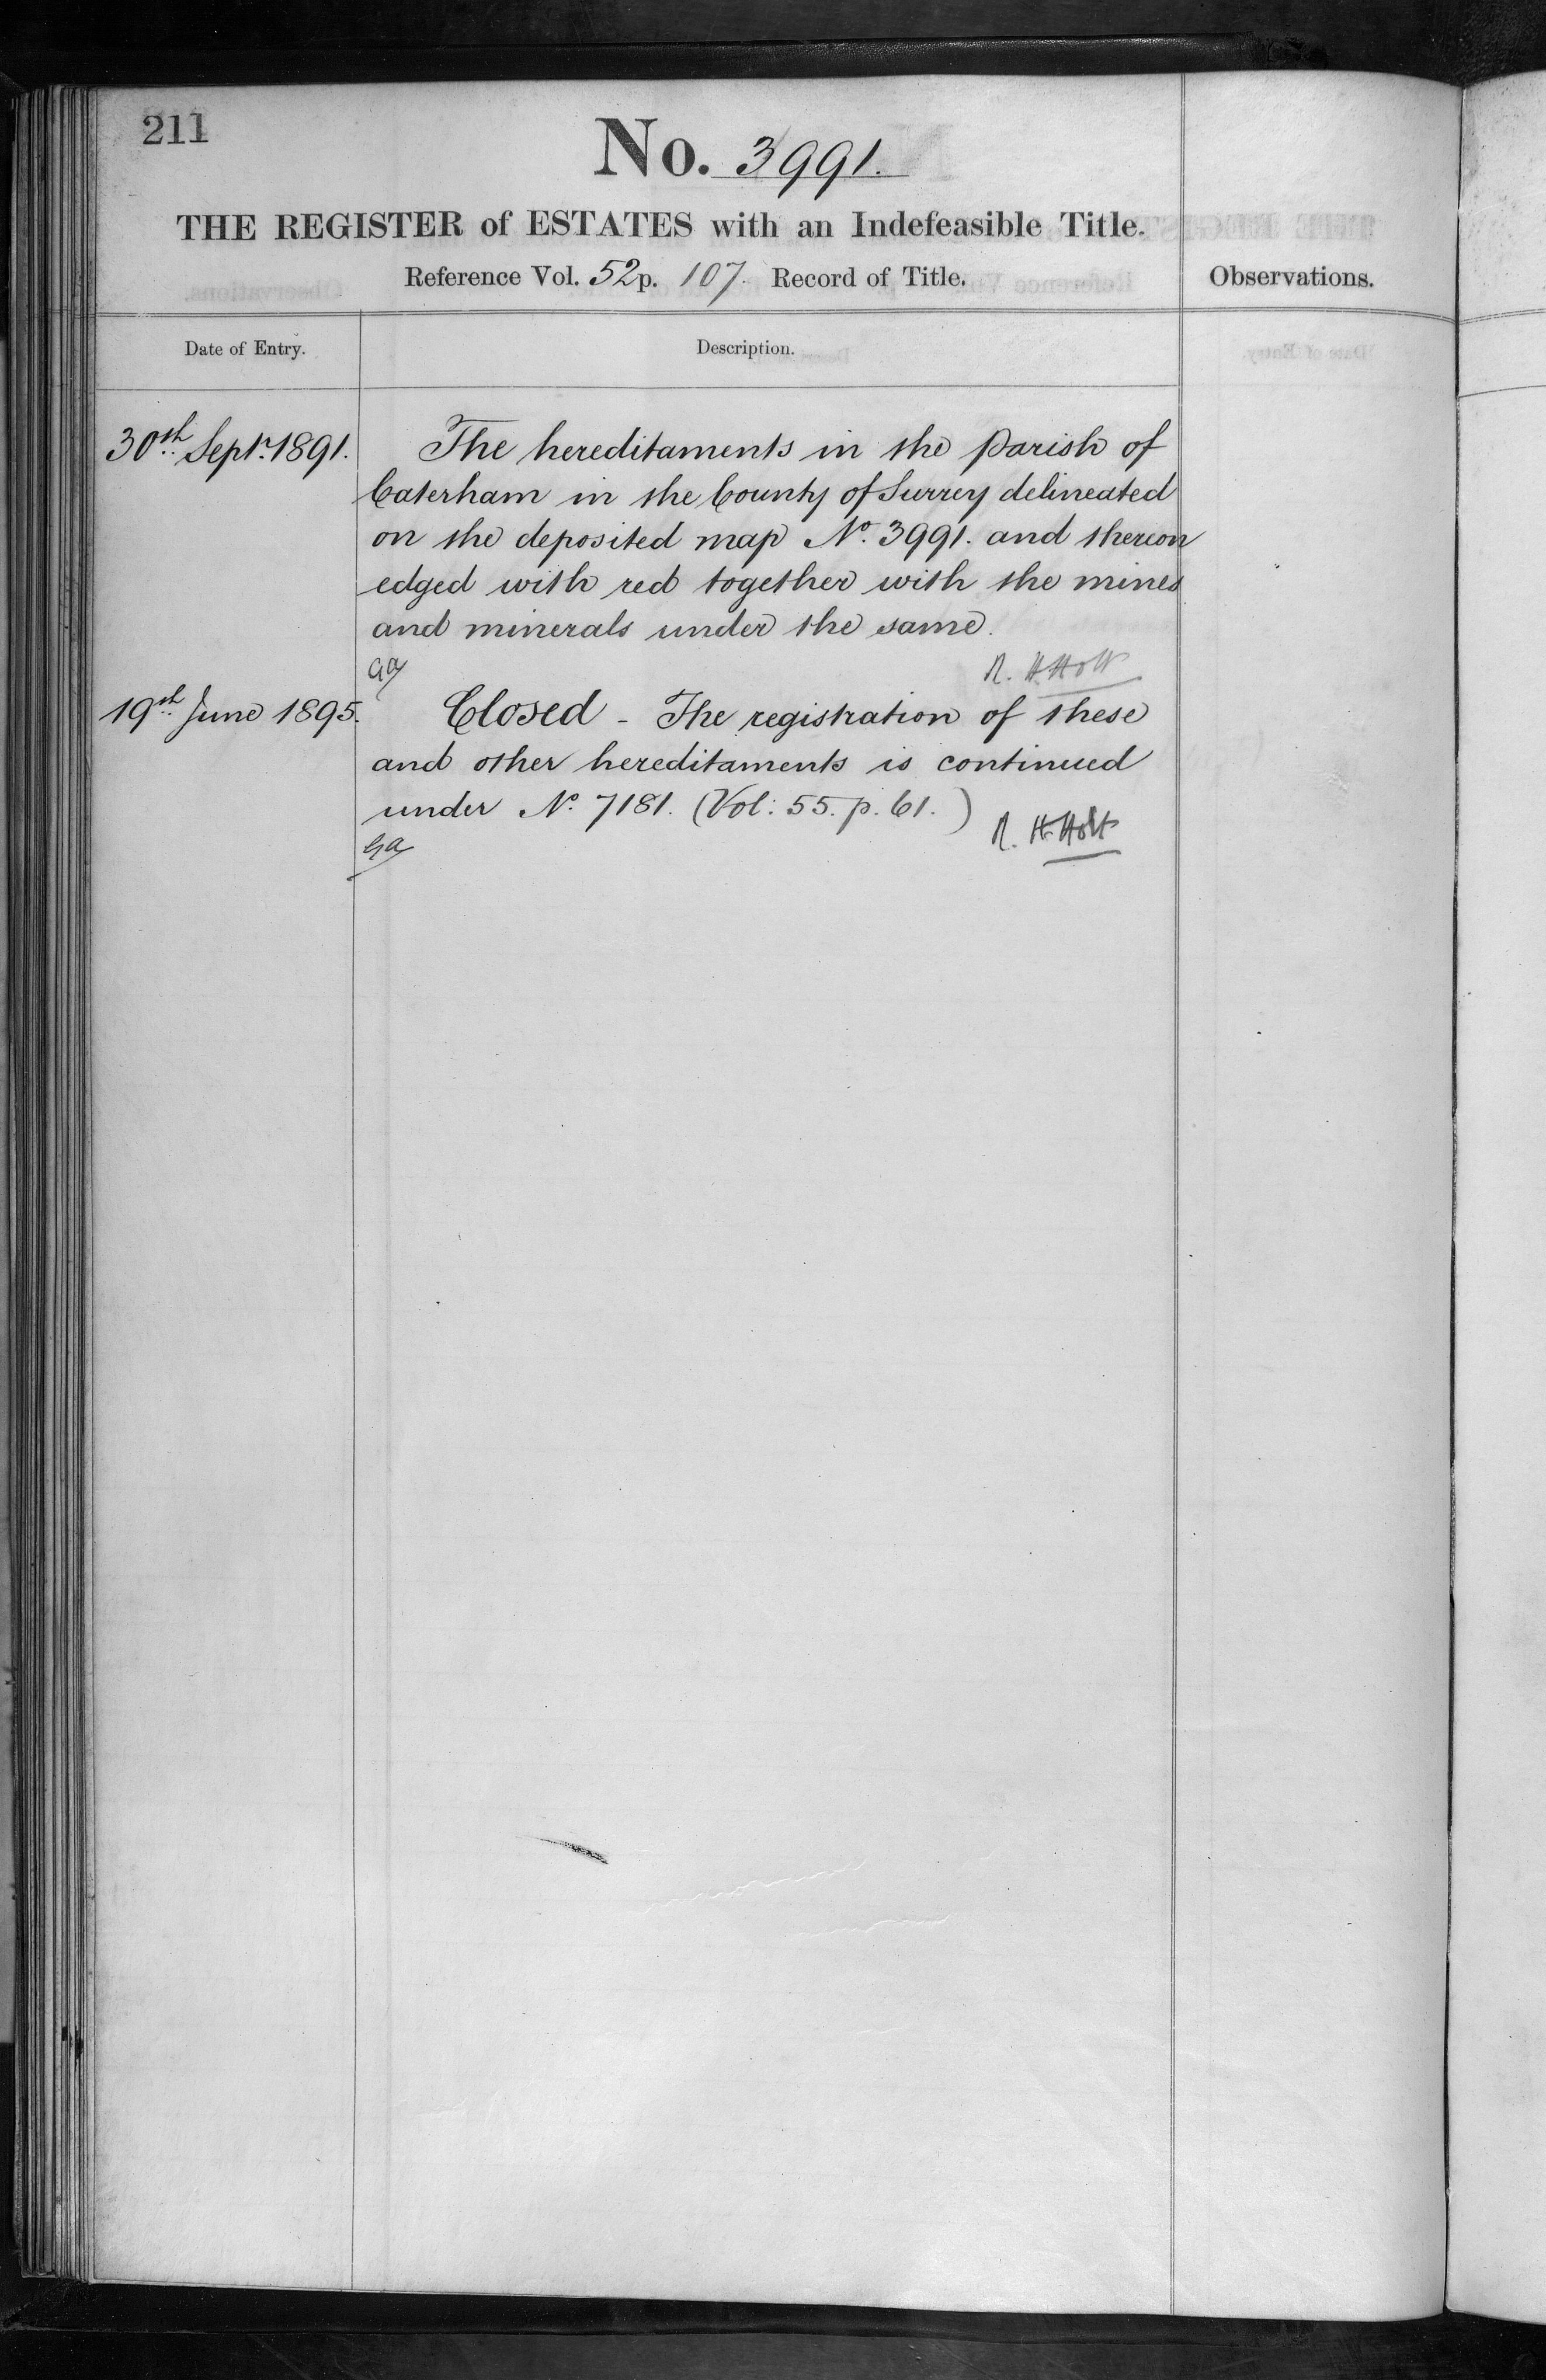 211
No. 3991.
THE REGISTER of ESTATES with an Indefeasible Title.
Reference Vol. 52 p. 107. Record of Title.
Observations.
Date of Entry.
Description.
30th Septr. 1891.
The hereditaments in the Parish of
Caterham in the County of Surrey delineated
on the deposited map No. 3991. and thereon
edged with red together with the mines
and minerals under the same.
R. H. Holt
19th June 1895.
Closed - The registration of these
and other hereditaments is continued
under No. 7181. (Vol: 55. p. 61.)
R. H. Holt